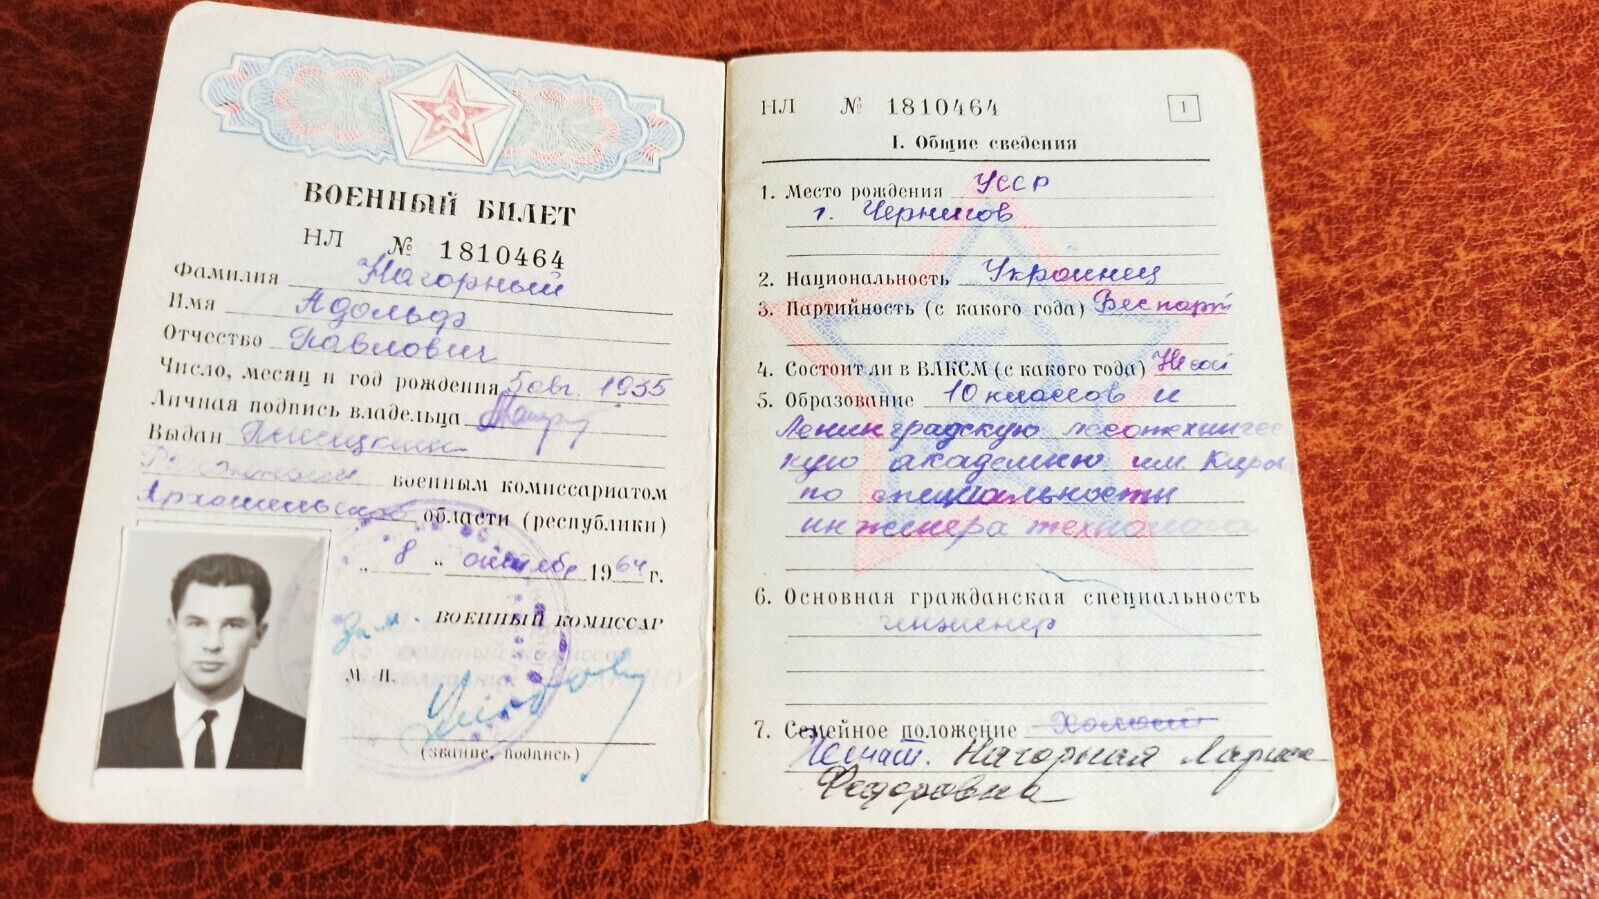 ВОЕННЫЙ БИЛЕТ
НЛ № 1810464
Фамилия Нагорный
Имя Адольф
Отчество Павлович
Число, месяц и год рождения 5 авг. 1935
Личная подпись владельца
Выдан Плисецким
Районным военным комиссариатом
Архангельской области (республики)
„ 8 “ октября 1964 г.
Зам. ВОЕННЫЙ КОМИССАР
М. П.
(звание, подпись)
НЛ № 1810464
1
I. Общие сведения
1. Место рождения УССР
г. Чернигов
2. Национальность Украинец
3. Партийность (с какого года) Беспарт
4. Состоит ли в ВЛКСМ (с какого года)
5. Образование 10 классов и
Ленинградскую лесотехничес
кую академию им. Киро
по специальности
инженера технолога
6. Основная гражданская специальность
инженер
7. Семейное положение Холост
Женат. Нагорная Лариса
Федоровна